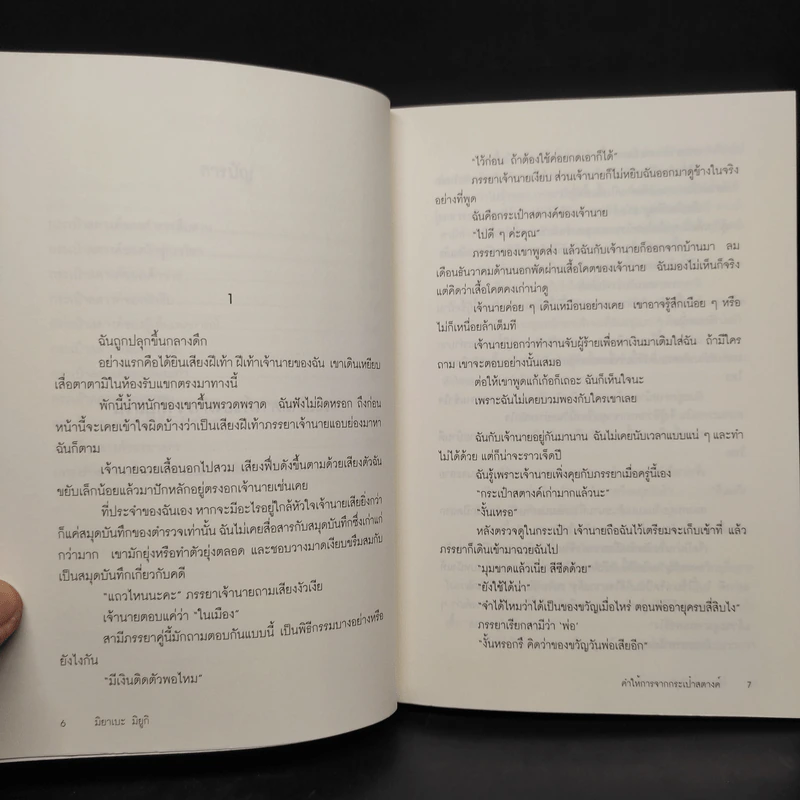 1
ฉันถูกปลุกขึ้นกลางดึก
อย่างแรกคือได้ยินเสียงฝีเท้า ฝีเท้าเจ้านายของฉัน เขาเดินเหยียบ
เสื่อตาตามิในห้องรับแขกตรงมาทางนี้
พักนี้น้ำหนักของเขาขึ้นพรวดพราด ฉันฟังไม่ผิดหรอก ถึงก่อน
หน้านี้จะเคยเข้าใจผิดบ้างว่าเป็นเสียงฝีเท้าภรรยาเจ้านายแอบย่องมาหา
ฉันก็ตาม
เจ้านายฉวยเสื้อนอกไปสวม เสียงฟึ่บดังขึ้นตามด้วยเสียงตัวฉัน
ขยับเล็กน้อยแล้วมาปักหลักอยู่ตรงอกเจ้านายเช่นเคย
ที่ประจำของฉันเอง หากจะมีอะไรอยู่ใกล้หัวใจเจ้านายเสียยิ่งกว่า
ก็แค่สมุดบันทึกของตำรวจเท่านั้น ฉันไม่เคยสื่อสารกับสมุดบันทึกซึ่งเก่าแก่
กว่ามาก เขามักยุ่งหรือทำตัวยุ่งตลอด และชอบวางมาดเงียบขรึมสมกับ
เป็นสมุดบันทึกเกี่ยวกับคดี
“แถวไหนนะคะ” ภรรยาเจ้านายถามเสียงงัวเงีย
เจ้านายตอบแค่ว่า “ในเมือง”
สามีภรรยาคู่นี้มักถามตอบกันแบบนี้ เป็นพิธีกรรมบางอย่างหรือ
ยังไงกัน
“มีเงินติดตัวพอไหม”
6 มิยาเบะ มิยูกิ
“ไว้ก่อน ถ้าต้องใช้ค่อยกดเอาก็ได้”
ภรรยาเจ้านายเงียบ ส่วนเจ้านายก็ไม่หยิบฉันออกมาดูข้างในจริง
อย่างที่พูด
ฉันคือกระเป๋าสตางค์ของเจ้านาย
“ไปดี ๆ ค่ะคุณ”
ภรรยาของเขาพูดส่ง แล้วฉันกับเจ้านายก็ออกจากบ้านมา ลม
เดือนธันวาคมด้านนอกพัดผ่านเสื้อโคตของเจ้านาย ฉันมองไม่เห็นก็จริง
แต่คิดว่าเสื้อโคตคงเก่าน่าดู
เจ้านายค่อย ๆ เดินเหมือนอย่างเคย เขาอาจรู้สึกเนือย ๆ หรือ
ไม่ก็เหนื่อยล้าเต็มที
เจ้านายบอกว่าทำงานจับผู้ร้ายเพื่อหาเงินมาเติมใส่ฉัน ถ้ามีใคร
ถาม เขาจะตอบอย่างนั้นเสมอ
ต่อให้เขาพูดแก้เก้อก็เถอะ ฉันก็เห็นใจนะ
เพราะฉันไม่เคยบวมพองกับใครเขาเลย
ฉันกับเจ้านายอยู่กันมานาน ฉันไม่เคยนับเวลาแบบแน่ ๆ และทำ
ไม่ได้ด้วย แต่ก็น่าจะราวเจ็ดปี
ฉันรู้เพราะเจ้านายเพิ่งคุยกับภรรยาเมื่อครู่นี้เอง
“กระเป๋าสตางค์เก่ามากแล้วนะ”
“งั้นเหรอ”
หลังตรวจดูในกระเป๋า เจ้านายถือฉันไว้เตรียมจะเก็บเข้าที่ แล้ว
ภรรยาก็เดินเข้ามาฉวยฉันไป
“มุมขาดแล้วเนี่ย สีซีดด้วย”
“ยังใช้ได้น่า”
“จำได้ไหมว่าได้เป็นของขวัญเมื่อไหร่ ตอนพ่ออายุครบสี่สิบไง”
ภรรยาเรียกสามีว่า ‘พ่อ’
“งั้นหรอกรึ คิดว่าของขวัญวันพ่อเสียอีก”
คำให้การจากกระเป๋าสตางค์ 7